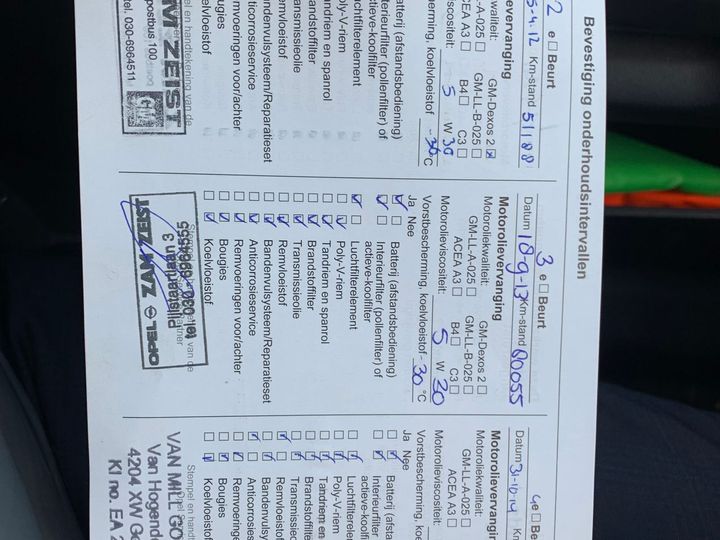 Bevestiging onderhoudsintervallen
2 e Beurt
5.4.12 Km-stand 51188
levervanging
kwaliteit: GM-Dexos 2
A-025 GM-LL-B-025
CEA A3 B4 C3
scositeit: 5 W 30
cherming, koelvloeistof -30 °C
Batterij (afstandsbediening)
nterieurfilter (pollenfilter) of
actieve-koolfilter
Luchtfilterelement
Poly-V-riem
Tandriem en spanrol
Brandstoffilter
Transmissieolie
Remvloeistof
Bandenvulsysteem/Reparatieset
Anticorrosieservice
Remvoeringen voor/achter
Bougies
Koelvloeistof
pel en handtekening van de
M ZEIST
postbus 100
tel. 030-6964511
3 e Beurt
Datum 18-9-13 Km-stand 80055
Motorolievervanging
Motoroliekwaliteit: GM-Dexos 2
GM-LL-A-025 GM-LL-B-025
ACEA A3 B4 C3
Motorolieviscositeit: 5 W 30
Vorstbescherming, koelvloeistof -30 °C
Ja Nee
Batterij (afstandsbediening)
Interieurfilter (pollenfilter) of
actieve-koolfilter
Luchtfilterelement
Poly-V-riem
Tandriem en spanrol
Brandstoffilter
Transmissieolie
Remvloeistof
Bandenvulsysteem/Reparatieset
Anticorrosieservice
Remvoeringen voor/achter
Bougies
Koelvloeistof
van de
OPEL ZAM ZEIST
3
tel. 030
4e Beurt
Datum 31-10-14
Motorolievervanging
Motoroliekwaliteit:
GM-LL-A-025
ACEA A3
Motorolieviscositeit:
Vorstbescherming, koe
Ja Nee
Batterij (afsta
Interieurfilter
actieve-koolfi
Luchtfilterele
Poly-V-riem
Tandriem en
Brandstoffilt
Transmissie
Remvloeisto
Bandenvulsy
Anticorrosies
Remvoeringe
Bougies
Koelvloeistof
Stempel en hand
VAN MILL GO
Van Hogend
4204 XW Go
KI no. EA 2